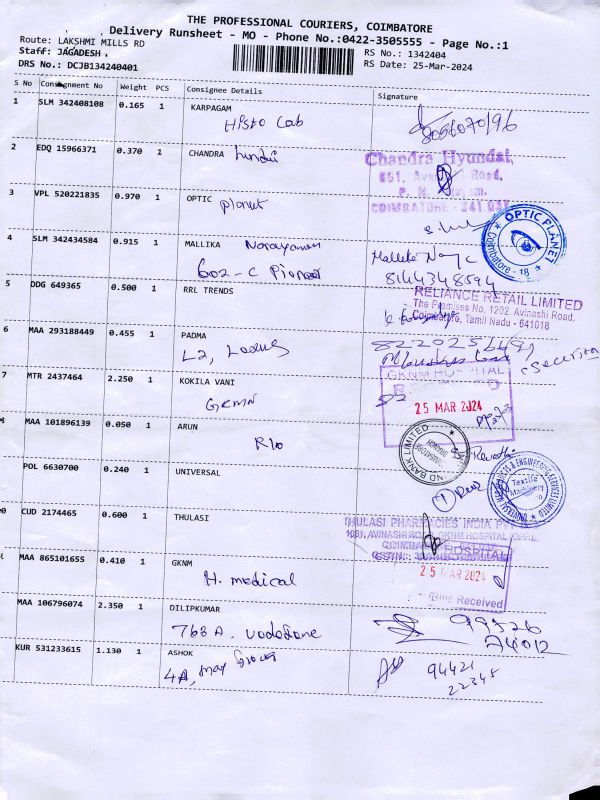 THE PROFESSIONAL COURIERS, COIMBATORE
Delivery Runsheet - MO - Phone No.:0422-3505555 - Page No.:1
Route: LAKSHMI MILLS RD
RS No.: 1342404
Staff: JAGADESH .
RS Date: 25-Mar-2024
DRS No.: DCJB134240401
S No Consignment No Weight PCS Consignee Details Signature
1 SLM 342408108 0.165 1 KARPAGAM
Histo Lab
8056070196
2 EDQ 15966371 0.370 1 CHANDRA Hundai
Chandra Hyundai,
851, Road,
COIMBATORE - 641 037
3 VPL 520221835 0.970 1 OPTIC Planet
OPTIC PLANET
Coimbatore - 18
4 SLM 342434584 0.915 1 MALLIKA Narayanan
602 - C Pioneer
8144348594
5 DDG 649365 0.500 1 RRL TRENDS
RELIANCE RETAIL LIMITED
The Premises No. 1202, Avinashi Road,
Coimbatore, Tamil Nadu - 641018
6 MAA 293188449 0.455 1 PADMA
L2,
Security
7 MTR 2437464 2.250 1 KOKILA VANI
GKMN
GKNM HOSPITAL
25 MAR 2024
8 MAA 101896139 0.050 1 ARUN
R10
BANK LIMITED
Revathi
POL 6630700 0.240 1 UNIVERSAL
Textile
Machinery
& ENGINEERING SERVICES LIMITED
0 CUD 2174465 0.600 1 THULASI
THULASI PHARMACIES INDIA
1081, AVINASHI ROAD, GKNM HOSPITAL
MAA 865101655 0.410 1 GKNM
H. medical
HOSPITAL
25 MAR 2024
Bills Received
MAA 106796074 2.350 1 DILIPKUMAR
768 A. Vodofone
99526
74012
KUR 531233615 1.130 1 ASHOK
4A, Max
94421
22345